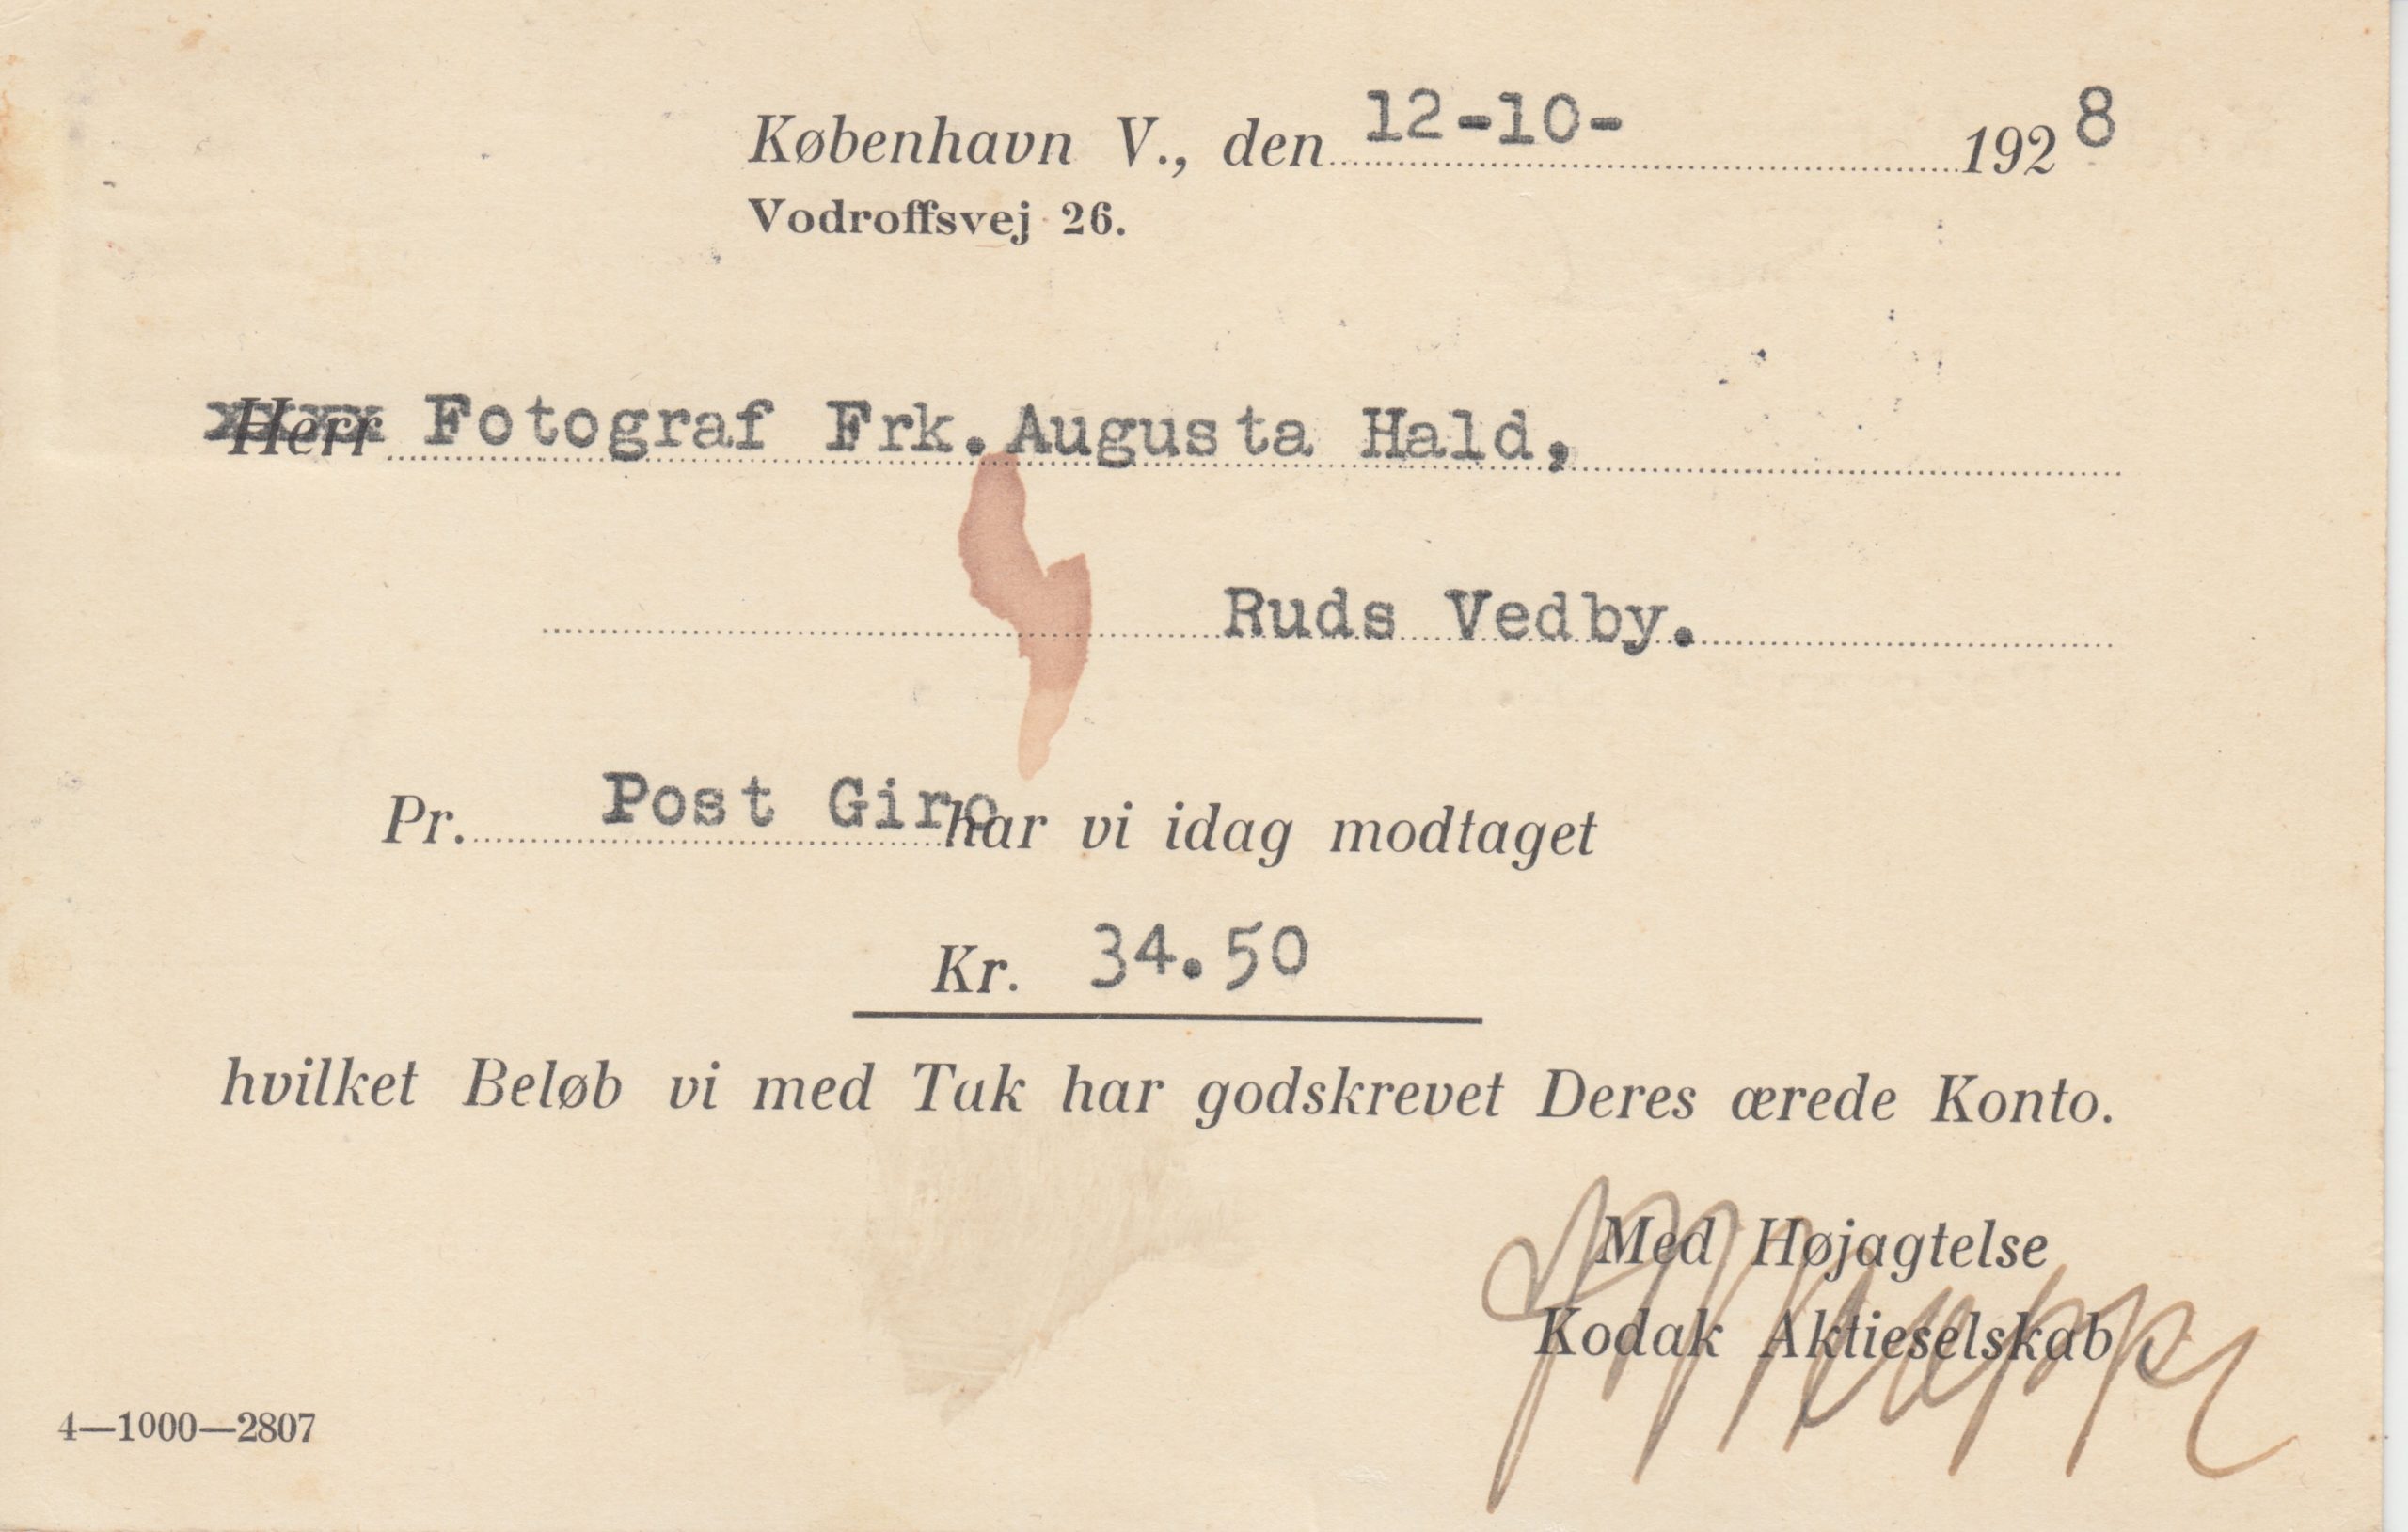 København V., den 12-10- 1928
Vodroffsvej 26.
Herr Fotograf Frk. Augusta Hald,
Ruds Vedby.
Pr. Post Giro har vi idag modtaget
Kr. 34.50
hvilket Beløb vi med Tak har godskrevet Deres ærede Konto.
Med Højagtelse
Kodak Aktieselskab
4—1000—2807